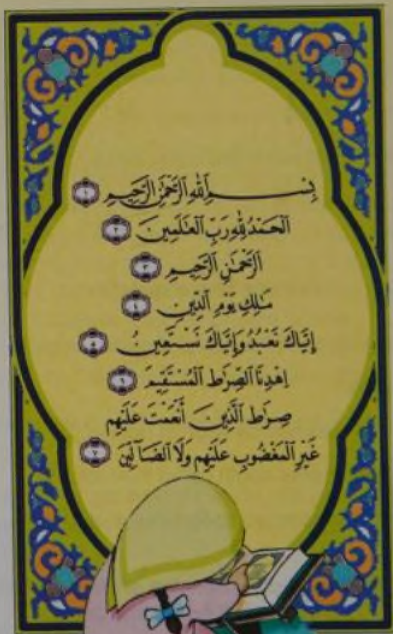 بِسْمِ اللَّهِ الرَّحْمَٰنِ الرَّحِيمِ ١
الْحَمْدُ لِلَّهِ رَبِّ الْعَالَمِينَ ٢
الرَّحْمَٰنِ الرَّحِيمِ ٣
مَالِكِ يَوْمِ الدِّينِ ٤
إِيَّاكَ نَعْبُدُ وَإِيَّاكَ نَسْتَعِينُ ٥
اهْدِنَا الصِّرَاطَ الْمُسْتَقِيمَ ٦
صِرَاطَ الَّذِينَ أَنْعَمْتَ عَلَيْهِمْ
غَيْرِ الْمَغْضُوبِ عَلَيْهِمْ وَلَا الضَّالِّينَ ٧